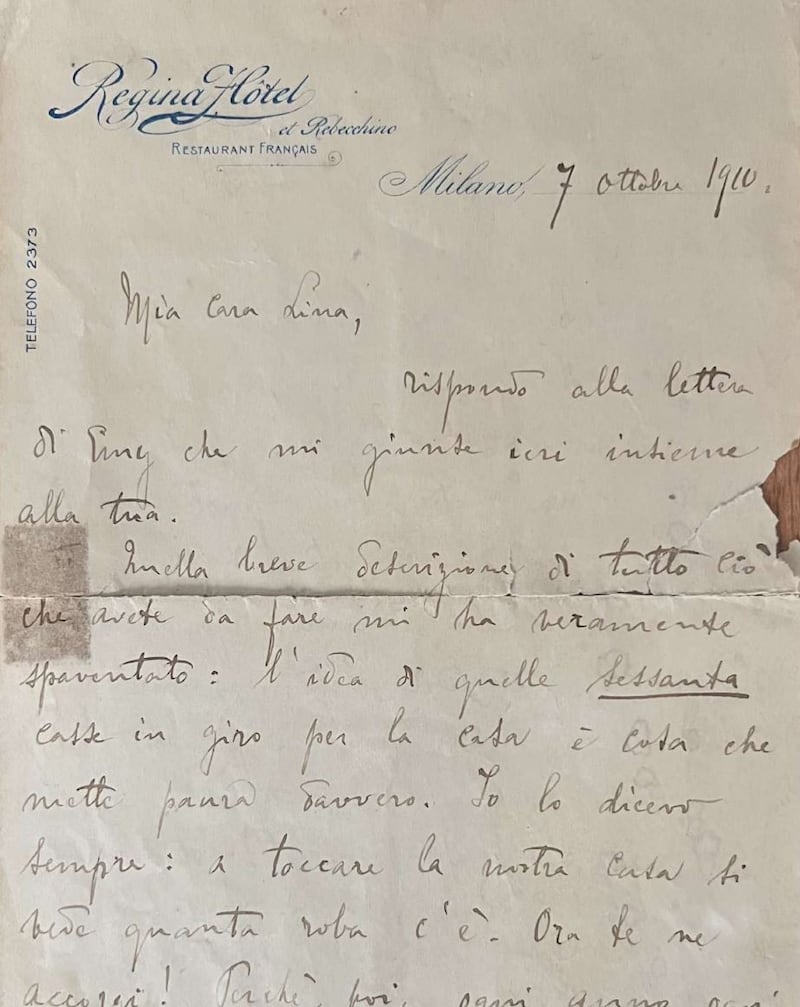 Regina Hôtel
et Rebecchino
RESTAURANT FRANÇAIS
Milano, 7 ottobre 1910.
TELEFONO 2373
Mia cara Lina,
rispondo alla lettera
di Emy che mi giunse ieri insieme
alla tua.
Quella breve descrizione di tutto ciò
che avete da fare mi ha veramente
spaventato: l'idea di quelle sessanta
casse in giro per la casa è cosa che
mette paura davvero. Io lo dicevo
sempre: a toccare la nostra casa si
vede quanta roba c'è. Ora te ne
accorgi! Perchè, poi, ogni anno, ogni